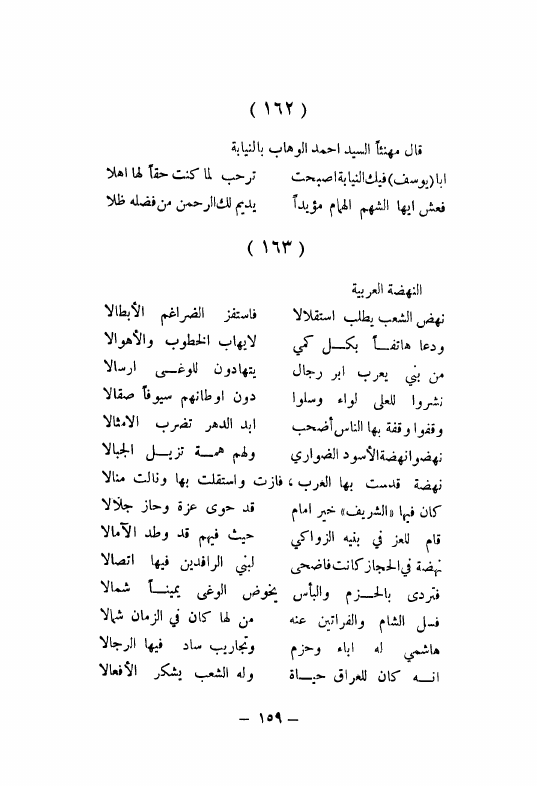 ( ١٦٢ )
قال مهنئاً السيد احمد الوهاب بالنيابة
ابا (يوسف) فيك النيابة اصبحت ترحب لما كنت حقاً لها اهلا
فعش ايها الشهم الهمام مؤيداً يديم لك الرحمن من فضله ظلا
( ١٦٣ )
النهضة العربية
نهض الشعب يطلب استقلالا فاستفز الضراغم الأبطالا
ودعا هاتفـــاً بكـــل كمي لايهاب الخطوب والأهوالا
من بني يعرب ابر رجال يتهادون للوغـــى ارسالا
نشروا للعلى لواء وسلوا دون اوطانهم سيوفاً صقالا
وقفوا وقفة بها الناس أضحب ابد الدهر تضرب الامثالا
نهضوا نهضة الأسود الضواري ولهم همـــة تزيـــل الجبالا
نهضة قدست بها العرب ، فازت واستقلت بها ونالت منالا
كان فيها «الشريف» خير امام قد حوى عزة وحاز جلالا
قام للعز في بنيه الزواكي حيث فيهم قد وطد الآمالا
نهضة في الحجاز كانت فاضحى لبني الرافدين فيها اتصالا
فتردى بالحـــزم والبأس يخوض الوغى يمينـــاً شمالا
فسل الشام والفراتين عنه من لها كان في الزمان ثمالا
هاشمي له اباء وحزم وتجاريب ساد فيها الرجالا
انـــه كان للعراق حيـــاة وله الشعب يشكر الأفعالا
– ١٥٩ –